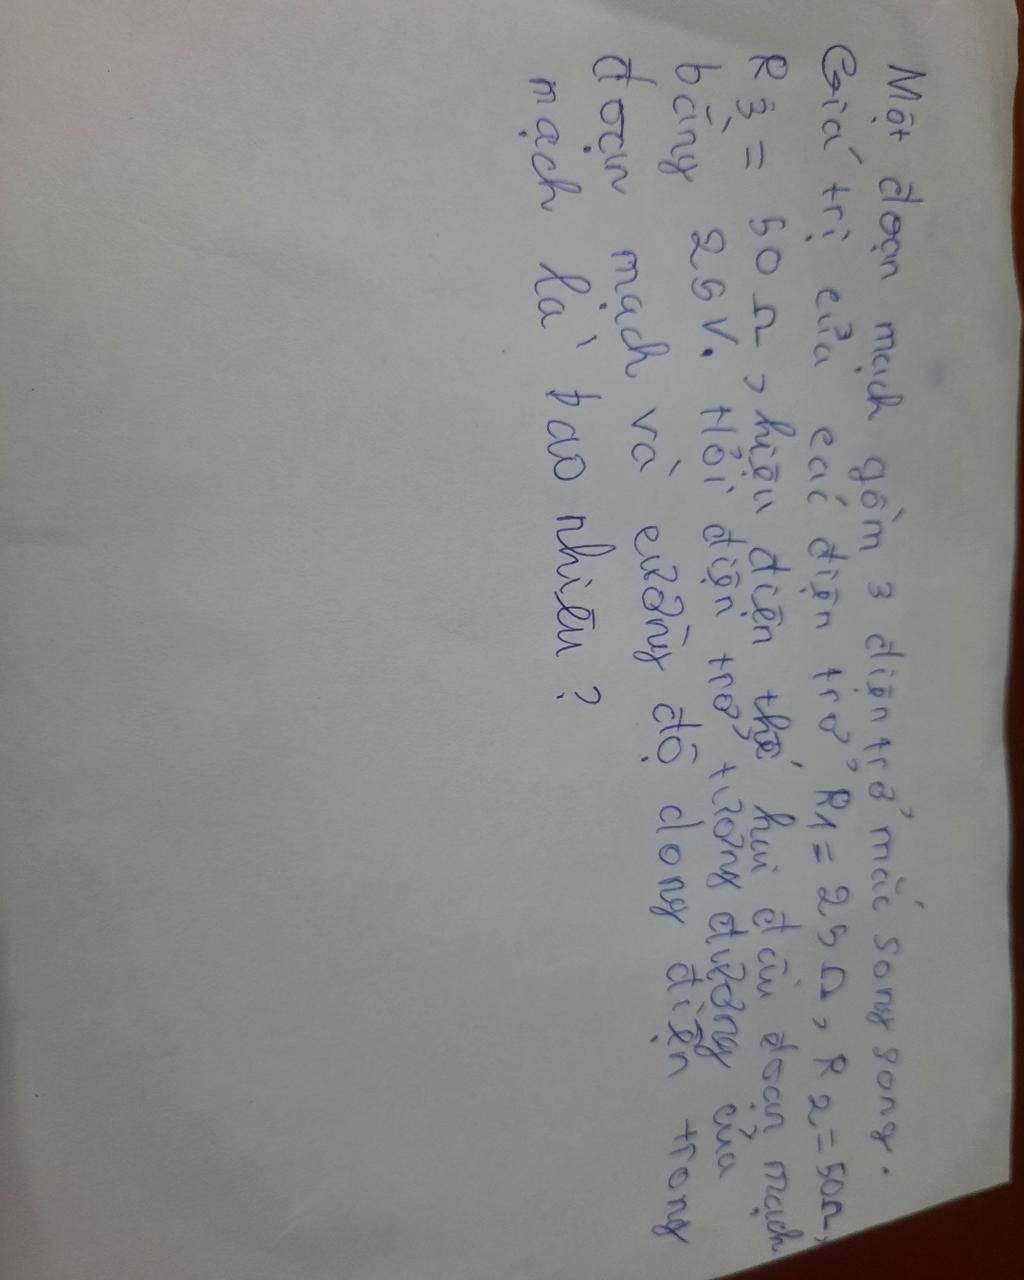 Một đoạn mạch gồm 3 điện trở mắc song song.
Giá trị của các điện trở R1 = 25 Ω, R2 = 50Ω,
R3 = 50 Ω, hiệu điện thế hai đầu đoạn mạch
bằng 25V. Hỏi điện trở tương đương của
đoạn mạch và cường độ dong điện trong
mạch là bao nhiêu?